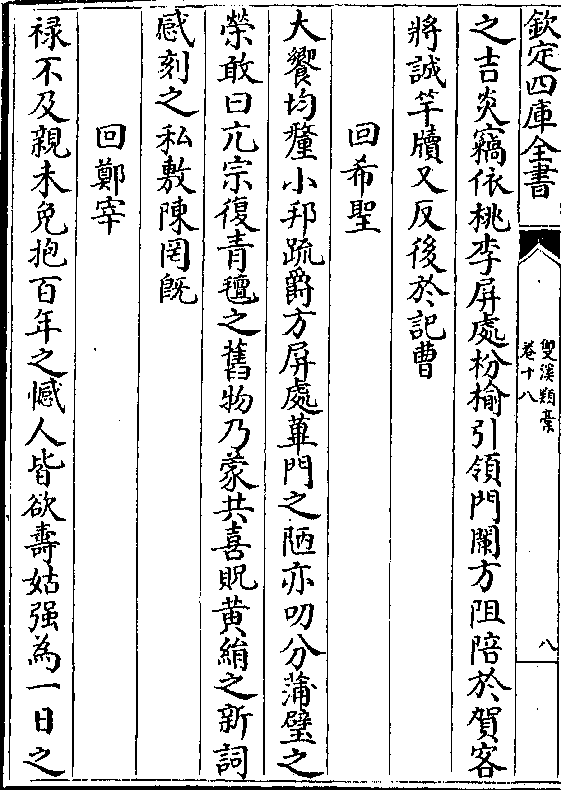 欽定四庫全書
雙溪類稾
卷十八
八
之吉炎窮依桃李屏處枌榆引領門闌方阻陪於賀客
將誠竿牘又反後於記曹
回希聖
大饗均釐小邦䟽爵方屏處蓽門之陋亦叨分蒲璧之
榮敢曰亢宗復青氊之舊物乃蒙共喜貺黄絹之新詞
感刻之私敷陳罔既
回鄭宰
禄不及親未免抱百年之憾人皆欲夀姑强為一日之